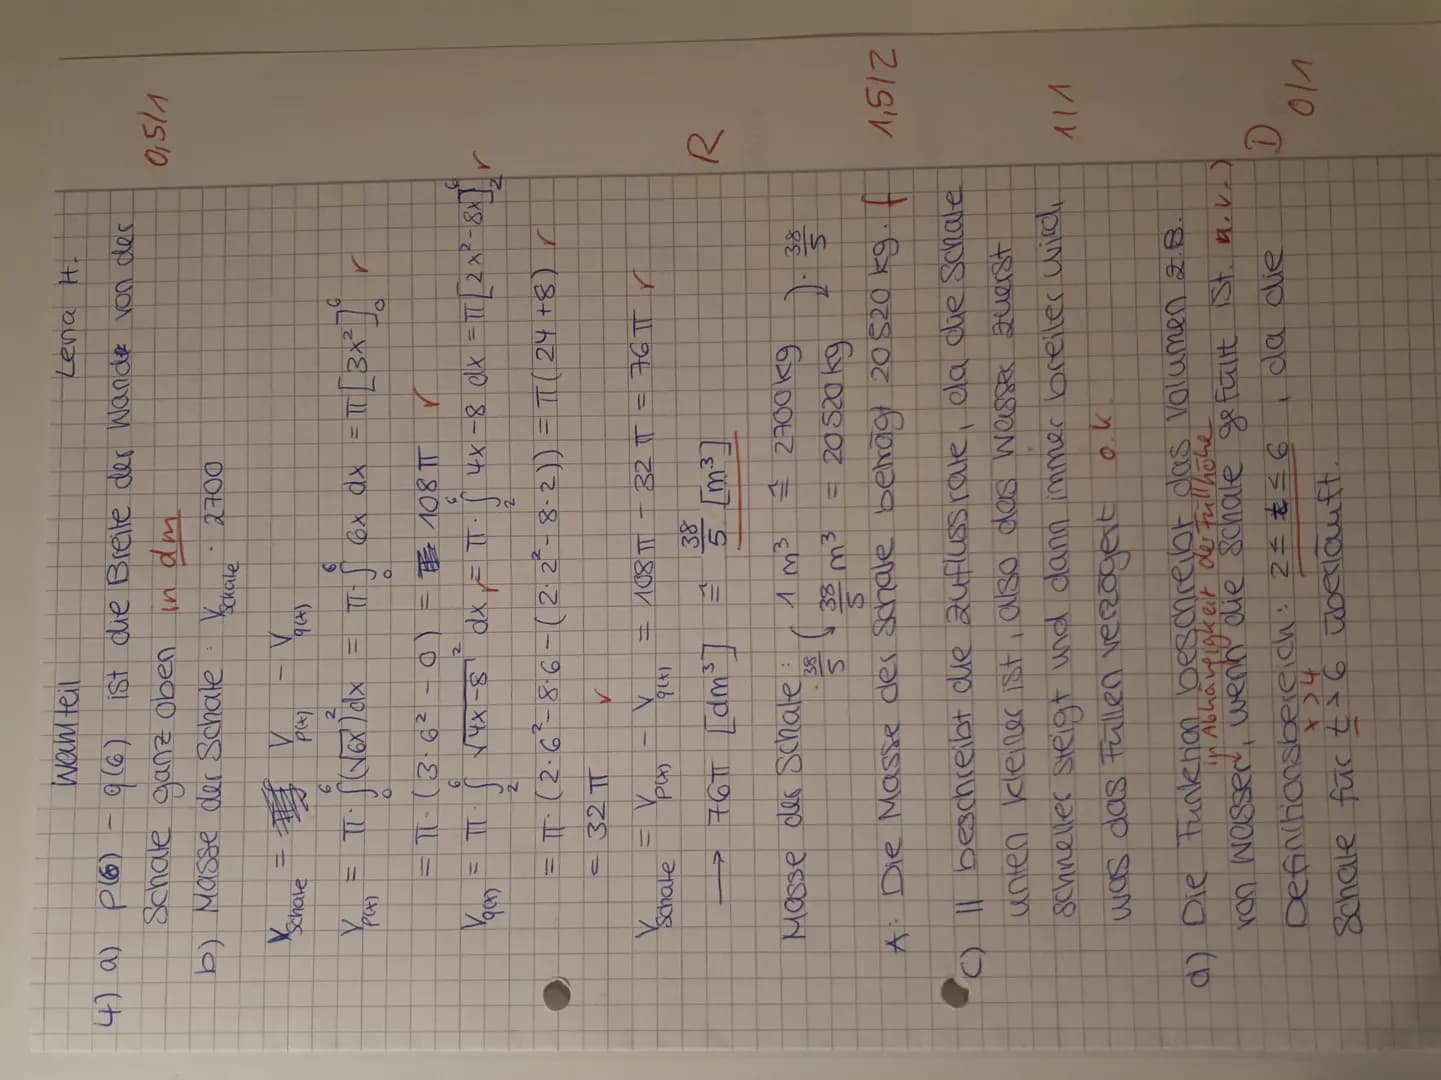 Wahlteil Lena H.
4) a) p(6) - q(6) ist die Breite der Wände von der 0,5/1
Schale ganz oben in dm
b) Masse der Schale: V_Schale · 2700
V_Schale = V_p(x) - V_q(x)
V_p(x) = π · ∫₀⁶ (√6x)² dx = π · ∫₀⁶ 6x dx = π [3x²]₀⁶ r
= π · (3·6² - 0) = 108π r
V_q(x) = π · ∫₂⁶ √4x-8² dx r = π · ∫₂⁶ 4x - 8 dx = π [2x² - 8x]₂⁶ r
= π · (2·6² - 8·6 - (2·2² - 8·2)) = π (24 + 8) r
= 32π r
V_Schale = V_p(x) - V_q(x) = 108π - 32π = 76π r
→ 76π [dm³] ≙ 38/5 [m³] R
Masse der Schale: 1 m³ ≙ 2700 kg
·38/5 ( 38/5 m³ = 20520 kg ) ·38/5
A: Die Masse der Schale beträgt 20520 kg. f 1,5/2
c) II beschreibt die Zuflussrate, da die Schale
unten kleiner ist, also das Wasser zuerst
schneller steigt und dann immer breiter wird, 1/1
was das Füllen verzögert o.k.
d) Die Funktion beschreibt das Volumen z.B.
in Abhängigkeit der Füllhöhe
von Wasser, wenn die Schale gefüllt ist. n.v.) D
Definitionsbereich: 2 ≤ t ≤ 6, da die 0/1
x > 4
Schale für t > 6 überläuft.